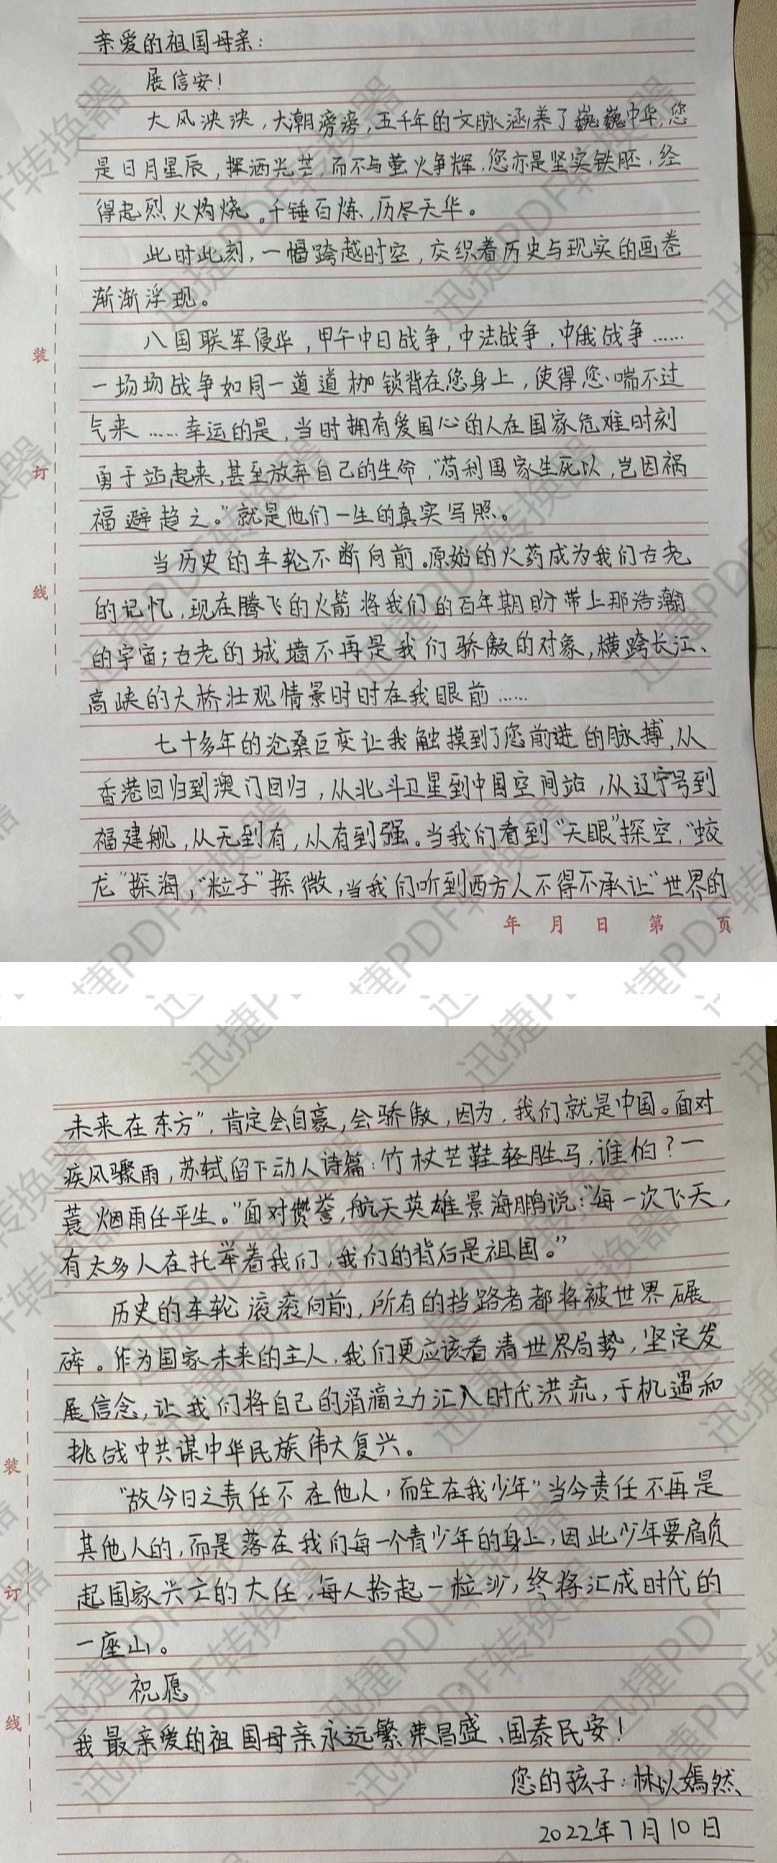 亲爱的祖国母亲：
展信安！
大风泱泱，大潮滂滂，五千年的文脉涵养了巍巍中华，您
是日月星辰，挥洒光芒，而不与萤火争辉，您亦是坚实铁胚，经
得起烈火灼烧，千锤百炼，历尽天华。
此时此刻，一幅跨越时空，交织着历史与现实的画卷
渐渐浮现。
八国联军侵华，甲午中日战争，中法战争，中俄战争……
一场场战争如同一道道枷锁背在您身上，使得您喘不过
气来……幸运的是，当时拥有爱国心的人在国家危难时刻
勇于站起来，甚至放弃自己的生命，“苟利国家生死以，岂因祸
福避趋之。”就是他们一生的真实写照。
当历史的车轮不断向前。原始的火药成为我们古老
的记忆，现在腾飞的火箭将我们的百年期盼带上那浩瀚
的宇宙；古老的城墙不再是我们骄傲的对象，横跨长江、
高峡的大桥壮观情景时时在我眼前……
七十多年的沧桑巨变让我触摸到了您前进的脉搏，从
香港回归到澳门回归，从北斗卫星到中国空间站，从辽宁号到
福建舰，从无到有，从有到强。当我们看到“天眼”探空，“蛟
龙”探海，“粒子”探微，当我们听到西方人不得不承让“世界的
年 月 日 第 页
未来在东方”，肯定会自豪，会骄傲，因为，我们就是中国。面对
疾风骤雨，苏轼留下动人诗篇：竹杖芒鞋轻胜马，谁怕？一
蓑烟雨任平生。”面对赞誉，航天英雄景海鹏说：“每一次飞天，
有太多人在托举着我们，我们的背后是祖国。”
历史的车轮滚滚向前，所有的挡路者都将被世界碾
碎。作为国家未来的主人，我们更应该看清世界局势，坚定发
展信念，让我们将自己的涓滴之力汇入时代洪流，于机遇和
挑战中共谋中华民族伟大复兴。
“故今日之责任不在他人，而全在我少年”当今责任不再是
其他人的，而是落在我们每一个青少年的身上，因此少年要肩负
起国家兴立的大任，每人拾起一粒沙，终将汇成时代的
一座山。
祝愿
我最亲爱的祖国母亲永远繁荣昌盛、国泰民安！
您的孩子：林以嫣然
2022年7月10日
装
订
线
装
订
线
迅捷PDF转换器